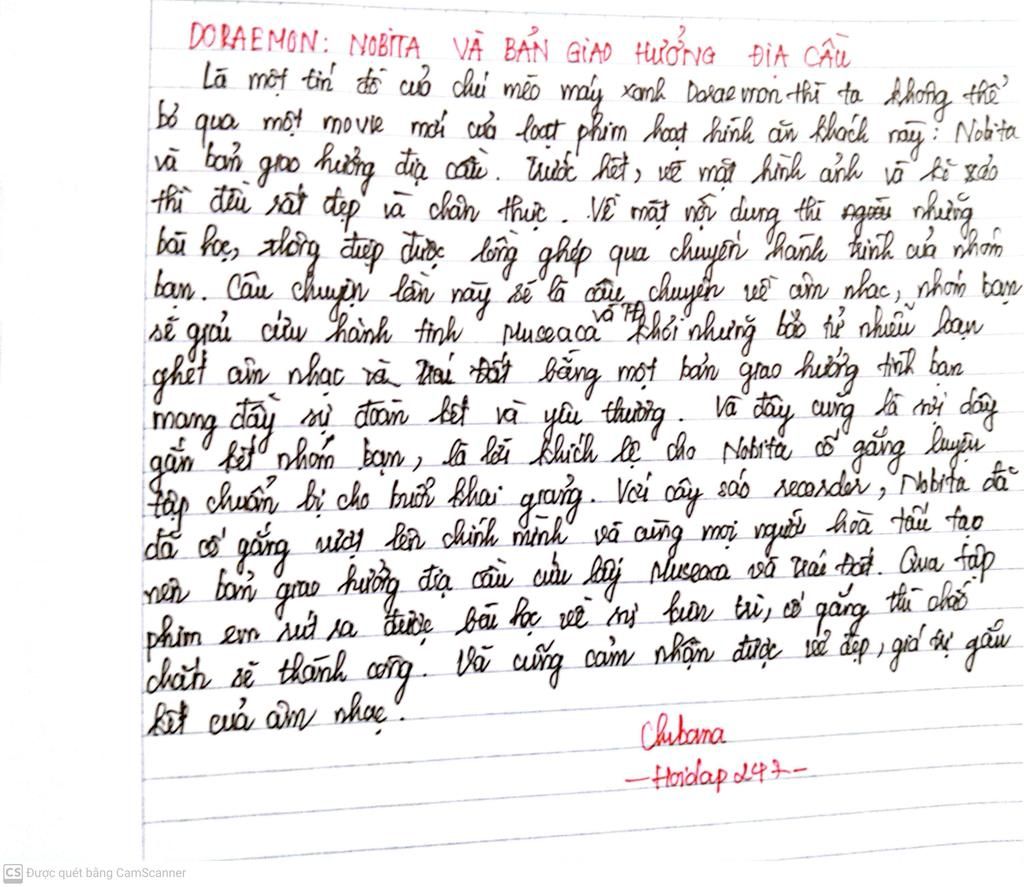 DORAEMON: NOBITA VÀ BẢN GIAO HƯỞNG ĐỊA CẦU
Là một tín đồ của chú mèo máy xanh Doraemon thì ta không thể
bỏ qua một movie mới của loạt phim hoạt hình ăn khách này: Nobita
và bản giao hưởng địa cầu. Trước hết, về mặt hình ảnh và kĩ xảo
thì đều rất đẹp và chân thực. Về mặt nội dung thì những
bài học, thông điệp được lồng ghép qua chuyến hành trình của nhóm
bạn. Câu chuyện lần này sẽ là câu chuyện về âm nhạc, nhóm bạn
sẽ giải cứu hành tinh Museaca và TĐ khỏi những bào tử nhiễu loạn
ghét âm nhạc bằng một bản giao hưởng tình bạn
mang đầy sự đoàn kết và yêu thương. Và đây cũng là sợi dây
gắn kết nhóm bạn, là lời khích lệ cho Nobita cố gắng luyện
tập chuẩn bị cho buổi khai giảng. Với cây sáo recorder, Nobita đã
đã cố gắng vượt lên chính mình và cùng mọi người hoà tấu tạo
nên bản giao hưởng địa cầu cứu lấy Museaca và Trái Đất. Qua tập
phim em rút ra được bài học về sự kiên trì, cố gắng thì chắc
chắn sẽ thành công. Và cũng cảm nhận được vẻ đẹp, giá trị gắn
kết của âm nhạc.
Chibana
- Hoidap247 -
CS Được quét bằng CamScanner